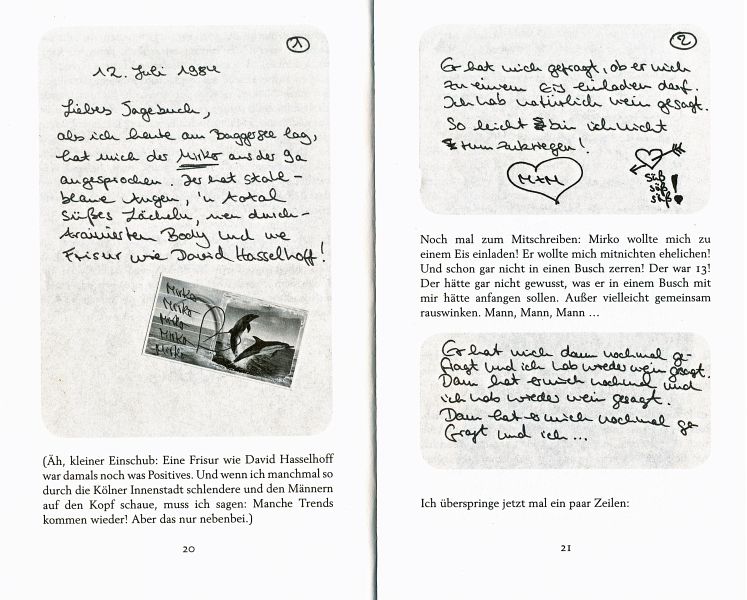 1
12. Juli 1984
Liebes Tagebuch,
als ich heute am Baggersee lag,
hat mich der Mirko aus der 9a
angesprochen. Der hat stahl-
blaue Augen, 'n total
süßes Lächeln, nen durch-
trainierten Body und ne
Frisur wie David Hasselhoff!
Mirko
Mirko
Mirko
Mirko
Mirko
(Äh, kleiner Einschub: Eine Frisur wie David Hasselhoff
war damals noch was Positives. Und wenn ich manchmal so
durch die Kölner Innenstadt schlendere und den Männern
auf den Kopf schaue, muss ich sagen: Manche Trends
kommen wieder! Aber das nur nebenbei.)
20
2
Er hat mich gefragt, ob er mich
zu einem Eis einladen darf.
Ich hab natürlich nein gesagt.
So leicht bin ich nicht
rumzukriegen!
M+M
süß
süß
süß!
Noch mal zum Mitschreiben: Mirko wollte mich zu
einem Eis einladen! Er wollte mich mitnichten ehelichen!
Und schon gar nicht in einen Busch zerren! Der war 13!
Der hätte gar nicht gewusst, was er in einem Busch mit
mir hätte anfangen sollen. Außer vielleicht gemeinsam
rauswinken. Mann, Mann, Mann …
Er hat mich dann nochmal ge-
fragt und ich hab wieder nein gesagt.
Dann hat er mich nochmal und
ich hab wieder nein gesagt.
Dann hat er mich nochmal ge
fragt und ich ...
Ich überspringe jetzt mal ein paar Zeilen:
21